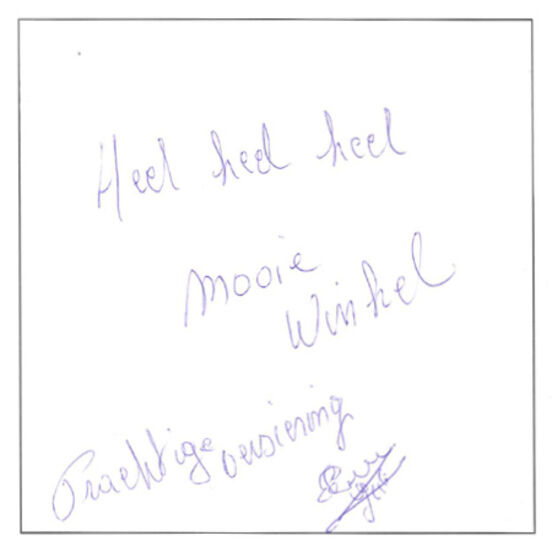 Heel heel heel
mooie
Winkel
Prachtige versiering